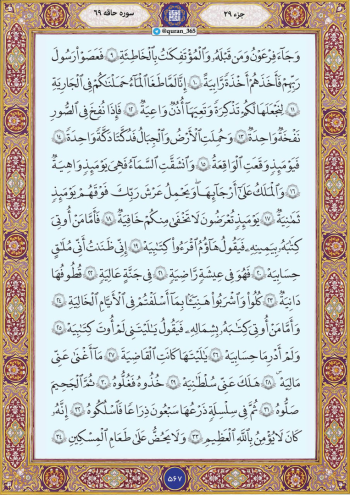 جزء ۲۹
سوره حاقه ۶۹
@quran_365
وَجَآءَ فِرْعَوْنُ وَمَن قَبْلَهُۥ وَٱلْمُؤْتَفِكَٰتُ بِٱلْخَاطِئَةِ ۹ فَعَصَوْا۟ رَسُولَ
رَبِّهِمْ فَأَخَذَهُمْ أَخْذَةً رَّابِيَةً ۱۰ إِنَّا لَمَّا طَغَا ٱلْمَآءُ حَمَلْنَٰكُمْ فِى ٱلْجَارِيَةِ
۱۱ لِنَجْعَلَهَا لَكُمْ تَذْكِرَةً وَتَعِيَهَآ أُذُنٌ وَٰعِيَةٌ ۱۲ فَإِذَا نُفِخَ فِى ٱلصُّورِ
نَفْخَةٌ وَٰحِدَةٌ ۱۳ وَحُمِلَتِ ٱلْأَرْضُ وَٱلْجِبَالُ فَدُكَّتَا دَكَّةً وَٰحِدَةً ۱۴
فَيَوْمَئِذٍ وَقَعَتِ ٱلْوَاقِعَةُ ۱۵ وَٱنشَقَّتِ ٱلسَّمَآءُ فَهِىَ يَوْمَئِذٍ وَاهِيَةٌ
۱۶ وَٱلْمَلَكُ عَلَىٰٓ أَرْجَآئِهَا وَيَحْمِلُ عَرْشَ رَبِّكَ فَوْقَهُمْ يَوْمَئِذٍ
ثَمَٰنِيَةٌ ۱۷ يَوْمَئِذٍ تُعْرَضُونَ لَا تَخْفَىٰ مِنكُمْ خَافِيَةٌ ۱۸ فَأَمَّا مَنْ أُوتِىَ
كِتَٰبَهُۥ بِيَمِينِهِۦ فَيَقُولُ هَآؤُمُ ٱقْرَءُوا۟ كِتَٰبِيَهْ ۱۹ إِنِّى ظَنَنتُ أَنِّى مُلَٰقٍ
حِسَابِيَهْ ۲۰ فَهُوَ فِى عِيشَةٍ رَّاضِيَةٍ ۲۱ فِى جَنَّةٍ عَالِيَةٍ ۲۲ قُطُوفُهَا
دَانِيَةٌ ۲۳ كُلُوا۟ وَٱشْرَبُوا۟ هَنِيٓـًٔۢا بِمَآ أَسْلَفْتُمْ فِى ٱلْأَيَّامِ ٱلْخَالِيَةِ ۲۴
وَأَمَّا مَنْ أُوتِىَ كِتَٰبَهُۥ بِشِمَالِهِۦ فَيَقُولُ يَٰلَيْتَنِى لَمْ أُوتَ كِتَٰبِيَهْ ۲۵
وَلَمْ أَدْرِ مَا حِسَابِيَهْ ۲۶ يَٰلَيْتَهَا كَانَتِ ٱلْقَاضِيَةَ ۲۷ مَآ أَغْنَىٰ عَنِّى
مَالِيَهْ ۲۸ هَلَكَ عَنِّى سُلْطَٰنِيَهْ ۲۹ خُذُوهُ فَغُلُّوهُ ۳۰ ثُمَّ ٱلْجَحِيمَ
صَلُّوهُ ۳۱ ثُمَّ فِى سِلْسِلَةٍ ذَرْعُهَا سَبْعُونَ ذِرَاعًا فَٱسْلُكُوهُ ۳۲ إِنَّهُۥ
كَانَ لَا يُؤْمِنُ بِٱللَّهِ ٱلْعَظِيمِ ۳۳ وَلَا يَحُضُّ عَلَىٰ طَعَامِ ٱلْمِسْكِينِ ۳۴
۵۶۷